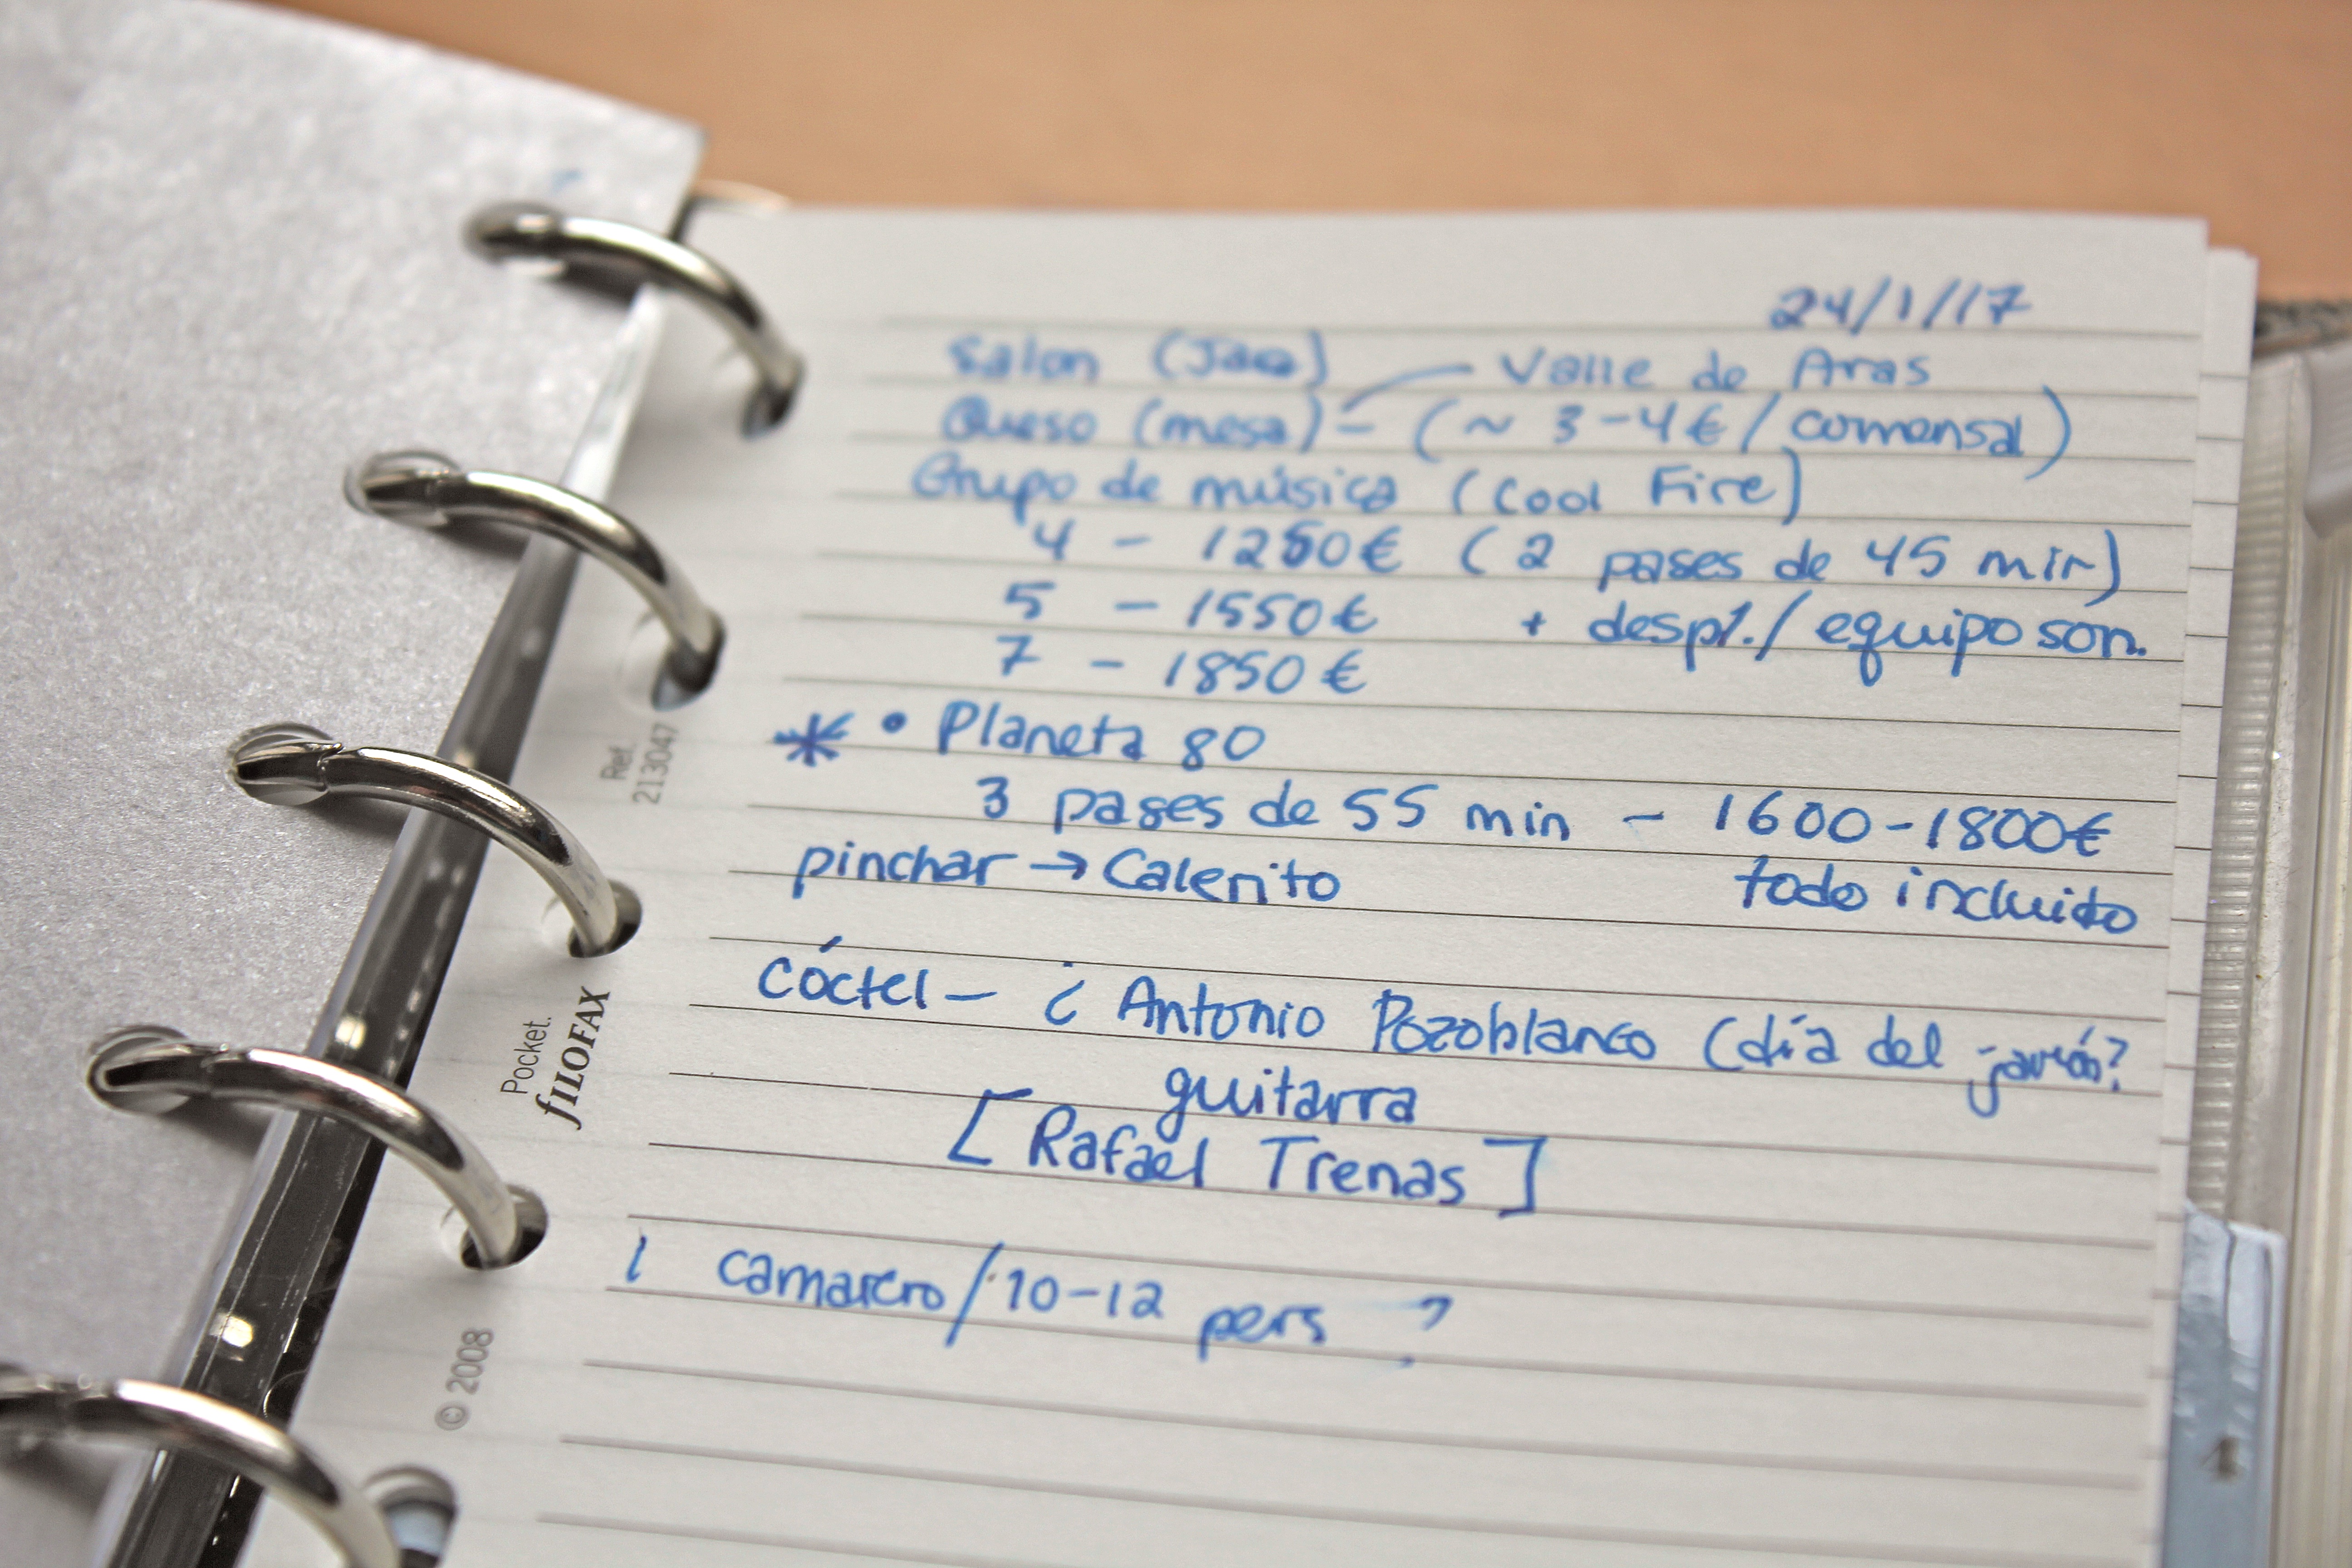 24/1/17
Salon (Jaca)
Valle de Aras
Queso (mesa) - (~ 3-4€ / comensal)
Grupo de música (Cool Fire)
4 - 1250€ (2 pases de 45 min)
5 - 1550€ + despl. / equipo son.
7 - 1850€
* • Planeta 80
3 pases de 55 min - 1600-1800€
pinchar → Calerito todo incluido
Cóctel - ¿ Antonio Pozoblanco (día del ?
guitarra
[ Rafael Trenas ]
1 camarero / 10-12 pers ?
Ref.
213047
Pocket.
fILOFAX
© 2008